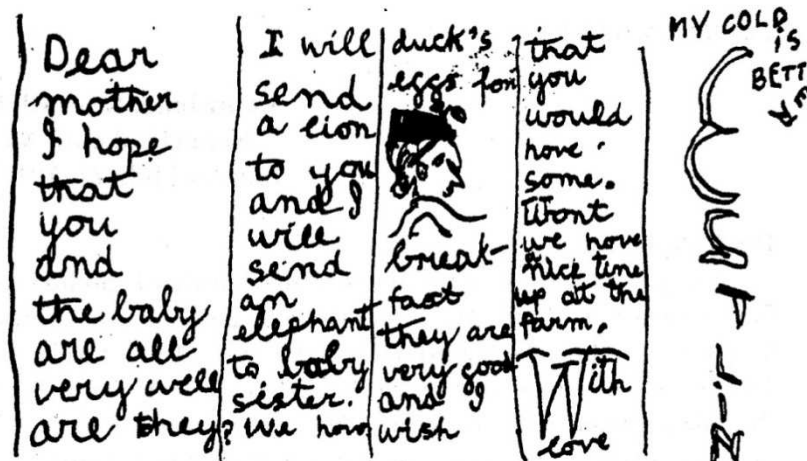 Dear
mother
I hope
that
you
and
the baby
are all
very well
are they?
I will
send
a lion
to you
and I
will
send
an
elephant
to baby
sister.
We have
duck's
eggs for
break-
fast
they are
very good
and I
wish
that
you
would
have
some.
Wont
we have
nice time
up at the
farm.
With
love
MY COLD
IS
BETTER